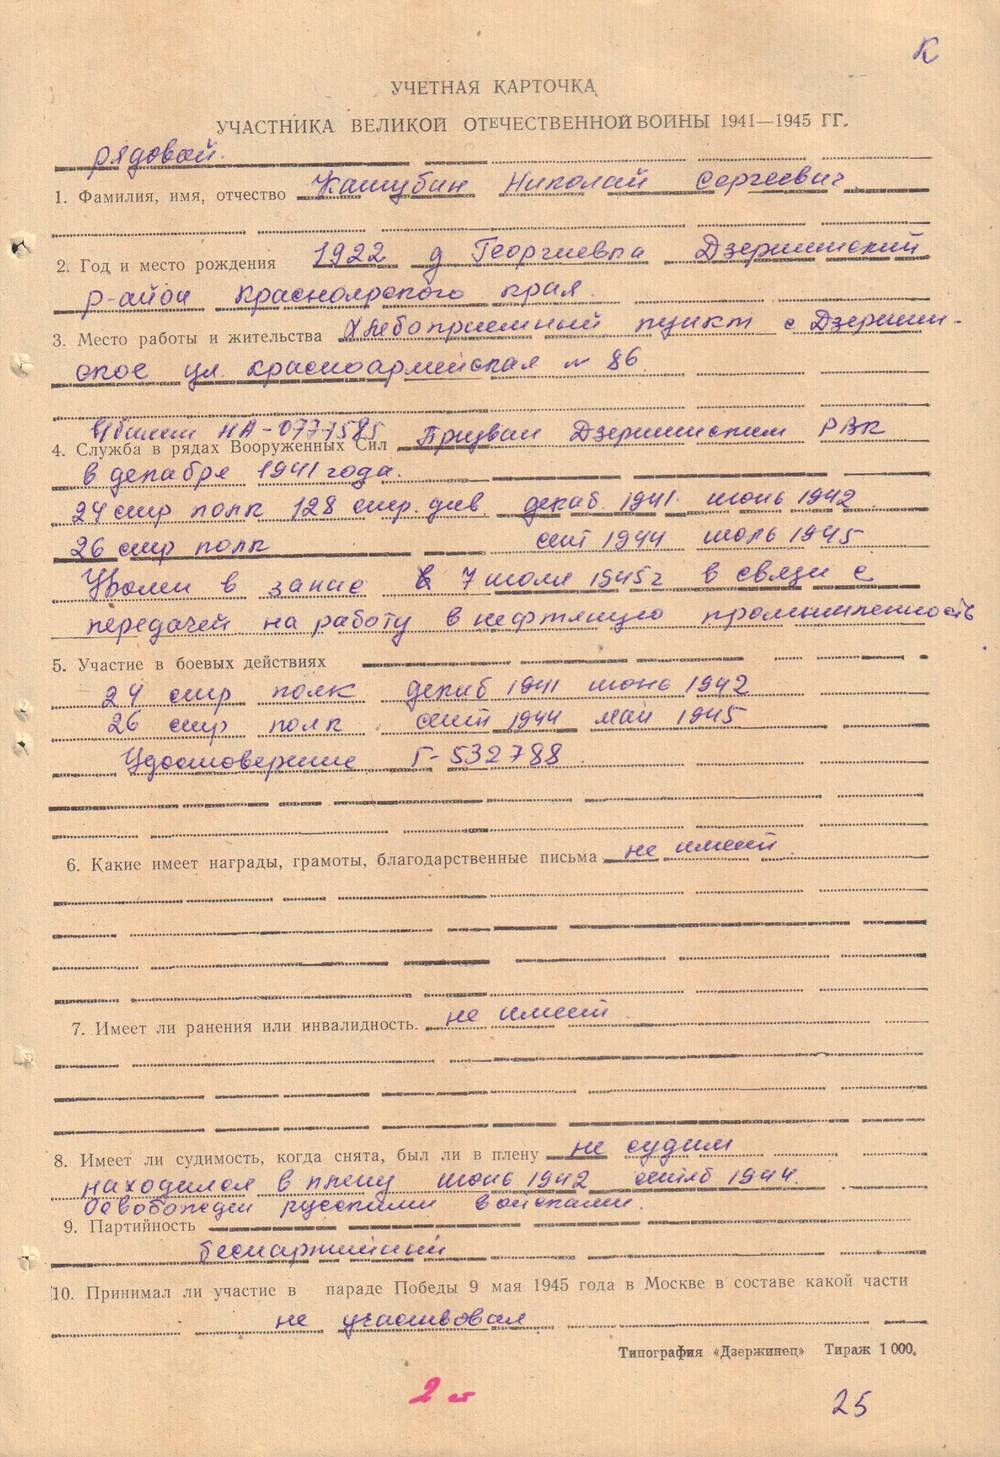 К
УЧЕТНАЯ КАРТОЧКА
УЧАСТНИКА ВЕЛИКОЙ ОТЕЧЕСТВЕННОЙ ВОЙНЫ 1941—1945 ГГ.
рядовой.
1. Фамилия, имя, отчество Кашубин Николай Сергеевич
2. Год и место рождения 1922 д Георгиевка Дзержинский
р-айон Красноярского края.
3. Место работы и жительства Хлебоприемный пункт с Дзержин-
ское ул. Красноармейская № 86.
В/билет НА-0777585
4. Служба в рядах Вооруженных Сил Призван Дзержинским РВК
в декабре 1941 года.
24 стр полк 128 стр. див. декаб. 1941. июнь 1942
26 стр полк сент 1944 июль 1945
Уволен в запас 7 июля 1945 г в связи с
передачей на работу в нефтяную промышленность
5. Участие в боевых действиях
24 стр полк декаб 1941 июнь 1942
26 стр полк сент 1944 май 1945
Удостоверение Г-532788
6. Какие имеет награды, грамоты, благодарственные письма не имеет
7. Имеет ли ранения или инвалидность. не имеет
8. Имеет ли судимость, когда снята, был ли в плену не судим
находился в плену июнь 1942 сентяб 1944.
Освобожден русскими войсками.
9. Партийность
беспартийный
10. Принимал ли участие в параде Победы 9 мая 1945 года в Москве в составе какой части
не участвовал
Типография «Дзержинец» Тираж 1 000.
2 ст
25